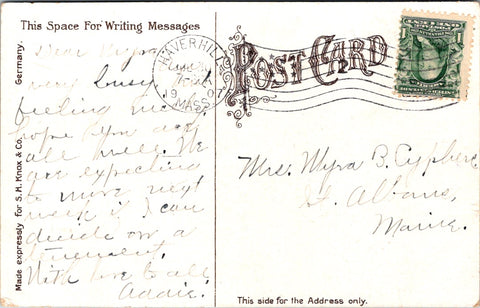 This Space For Writing Messages
Dear Myra
very busy and
feeling
hope you are
all well. We
are expecting
to move next
week if I can
decide on a
tenement.
With love to all
Addie.
Made expressly for S. H. Knox & Co. Germany.
HAVERHILL
1907
MASS.
POST CARD
Mrs. Myra B. Cyphers
St. Albans,
Maine.
This side for the Address only.